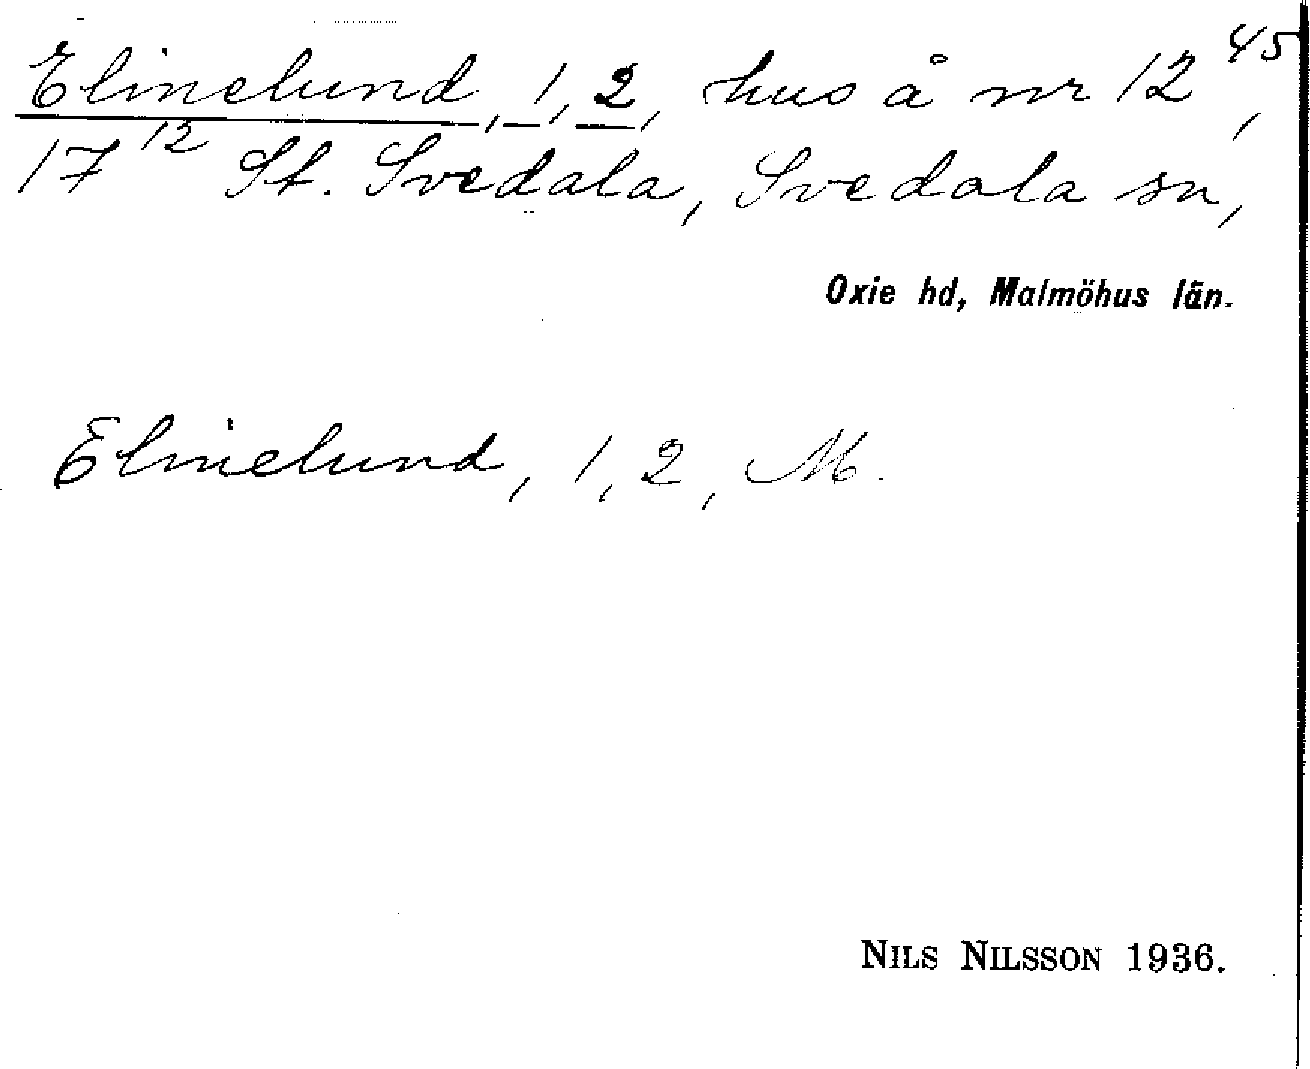 Elinelund, 1, 2, hus å nr 12⁴⁵,
17¹² St. Svedala, Svedala sn,
Oxie hd, Malmöhus län.
Elinelund, 1, 2, M.
NILS NILSSON 1936.